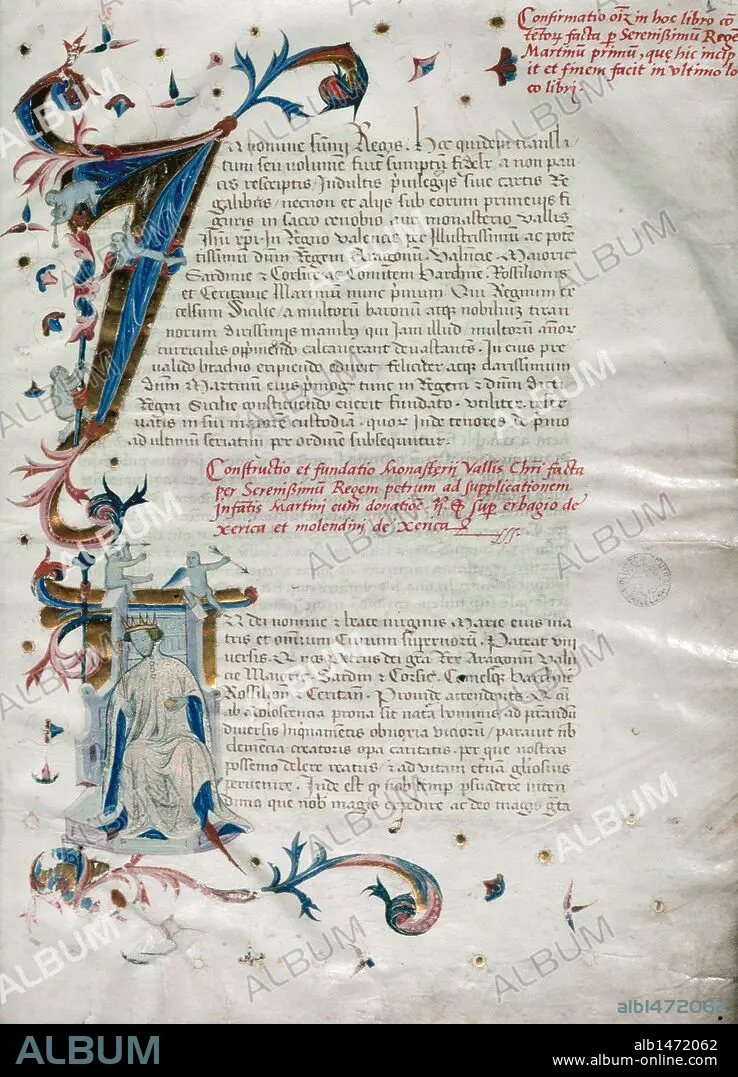 Confirmatio oīz in hoc libro cō
tētorꝫ facta p Serenißimū Regē
Martinū primū, quę hic incip
it et finem facit in vltimo lo
co libri.
nomine sūmi Regis. Hoc quidem transla
tum seu volumē
cis rescriptis, Indultis p̄uilegijs siue cartis Re
galibus, necnon et alijs sub eorum primeuis fi
guris in sacro cenobio siue monasterio vallis
Jhū xp̄i. in Regno valencie per Illustrissimū ac potē
tissimū dūm Regem Aragonū, valēcie, Maioric
Sardinie ⁊ Corsice ac Comitem barchn̄e, Rossilionis
et Ceritanie Martinū nunc primum. Qui Regnum ex
celsum Sicilie, a multorū baronū atqꝫ nobiliuꝫ tiran
norum dirissimis manibꝫ qui Jam illud multorū annorꝫ
curriculis opp̄mendo calcauerant deuastantes. In eius pre
ualido brachio eripiendo feliciter, atqꝫ clarissimum
dūm Martinū eius p̄mogꝫ tunc in Regem ⁊ dūm dicti
Regni Sicilie constituendo
custodiā. quorꝫ inde tenores de p̄mo
ad ultimū seriatim per ordinē subsequūtur.
Constructio et fundatio Monasterij Vallis Chrī facta
per Serenißimū Regem petrum ad supplicationem
Infātis Martini cum donatiōe sup erbagio de
xerica et molendinj de xerica
dei nomine ⁊ beate virginis Marie eius ma
tris et omnium Ciuium supernorū. Pateat vni
versis. Qꝫ nos Petrus dei grā Rex Aragonū, valn̄
cie Maioric, Sardn̄ ⁊ Corsic, Comesqꝫ barchn̄e
Rossilion̄ ⁊ Ceritan̄. Prouide attendentes
ab adoloscencia prona sit natā hominis ad
diuersis Inquiamentis obnoxia viciorū, parauit
clemēcia creatoris opa caritatis. per que nostros
possemo delere reatus, ⁊ ad vitam et̄nā gliosius
peruenire. Inde est qꝫ persuadere
dimo que magis expedire ac deo magis grā
ALBUM
alb1472062
ALBUM
alb1472062
www.album-online.com